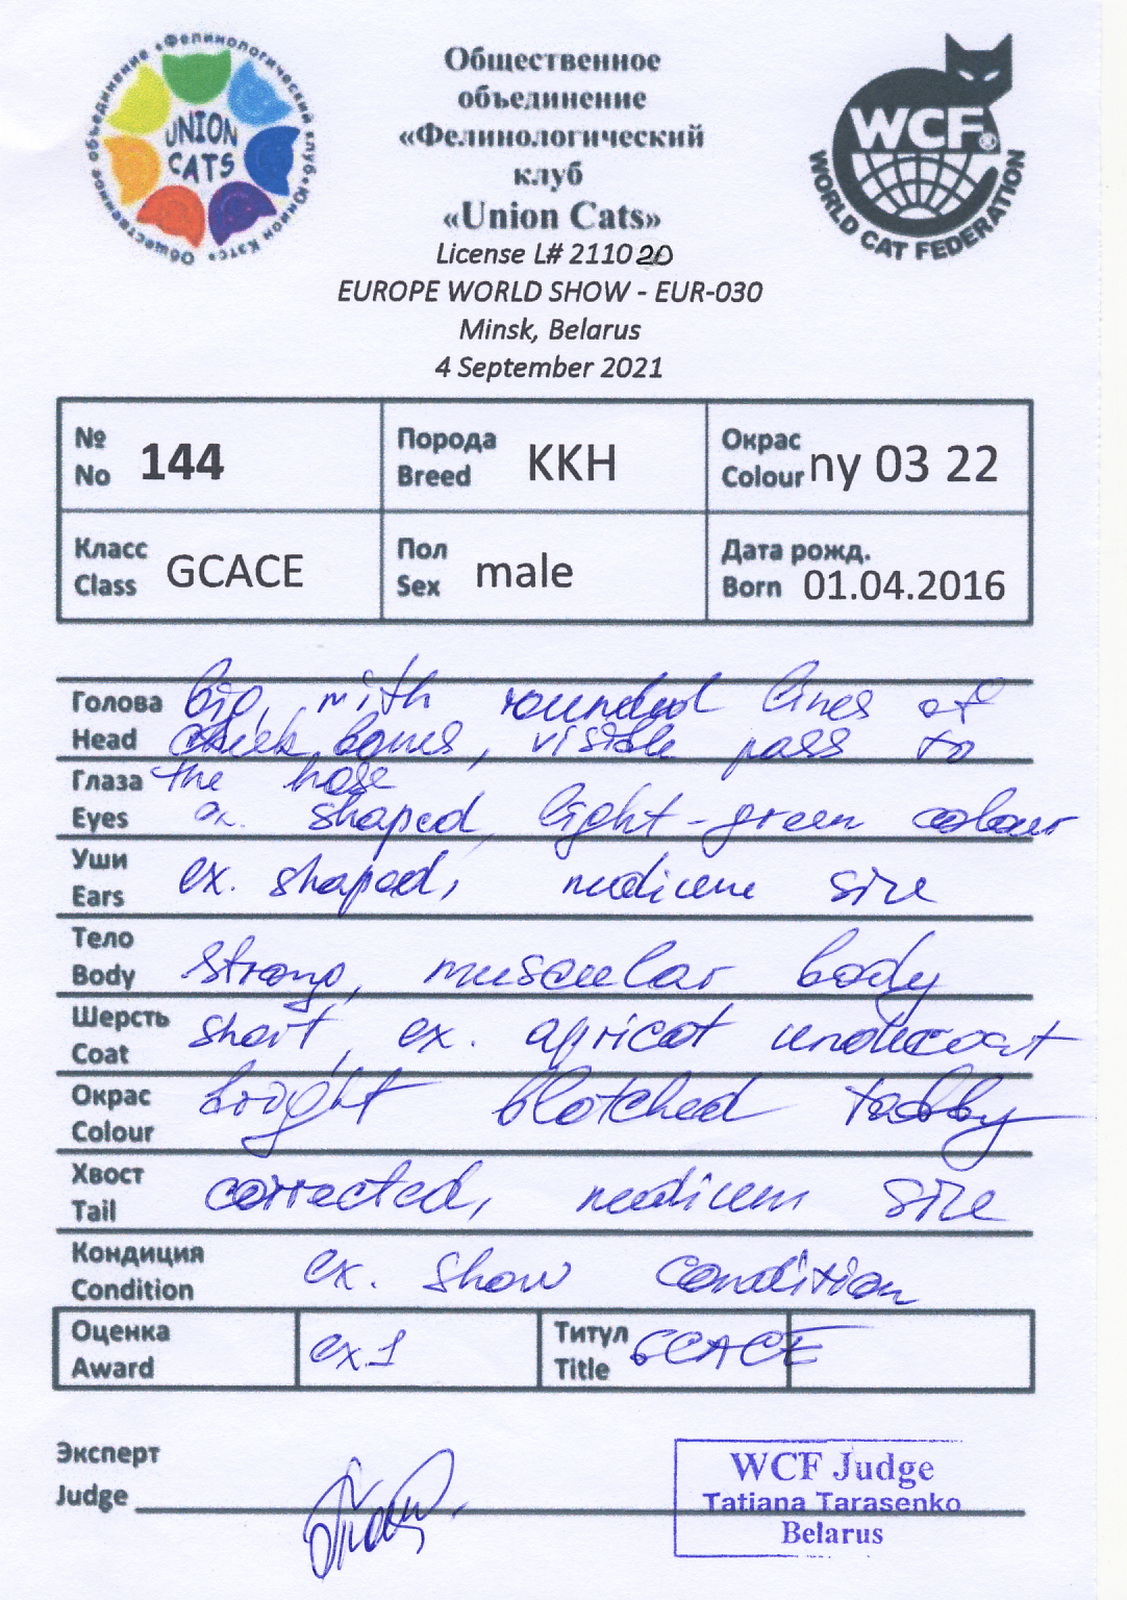 Общественное объединение «Фелинологический клуб «Юнион Кэтс»
UNION
CATS
Общественное
объединение
«Фелинологический
клуб
«Union Cats»
License L# 211020
EUROPE WORLD SHOW - EUR-030
Minsk, Belarus
4 September 2021
WCF®
WORLD CAT FEDERATION
№
No 144
Порода
Breed KKH
Окрас
Colour ny 03 22
Класс
Class GCACE
Пол
Sex male
Дата рожд.
Born 01.04.2016
Голова big, with rounded lines of
Head cheek bones, visible pass to
Глаза the nose
Eyes ex. shaped, light-green colour
Уши
Ears ex. shaped, medium size
Тело
Body strong, muscular body
Шерсть
Coat short, ex. apricot undercoat
Окрас
Colour bright blotched tabby
Хвост
Tail corrected, medium size
Кондиция
Condition ex. show condition
Оценка
Award ex1
Титул
Title GCACE
Эксперт
Judge
WCF Judge
Tatiana Tarasenko
Belarus